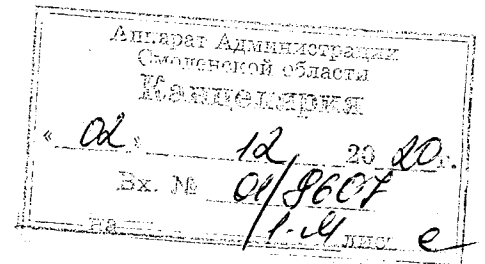 Аппарат Администрации
Смоленской области
Канцелярия
« 02 » 12 20 20 г.
Вх. № 01/9607
на лист